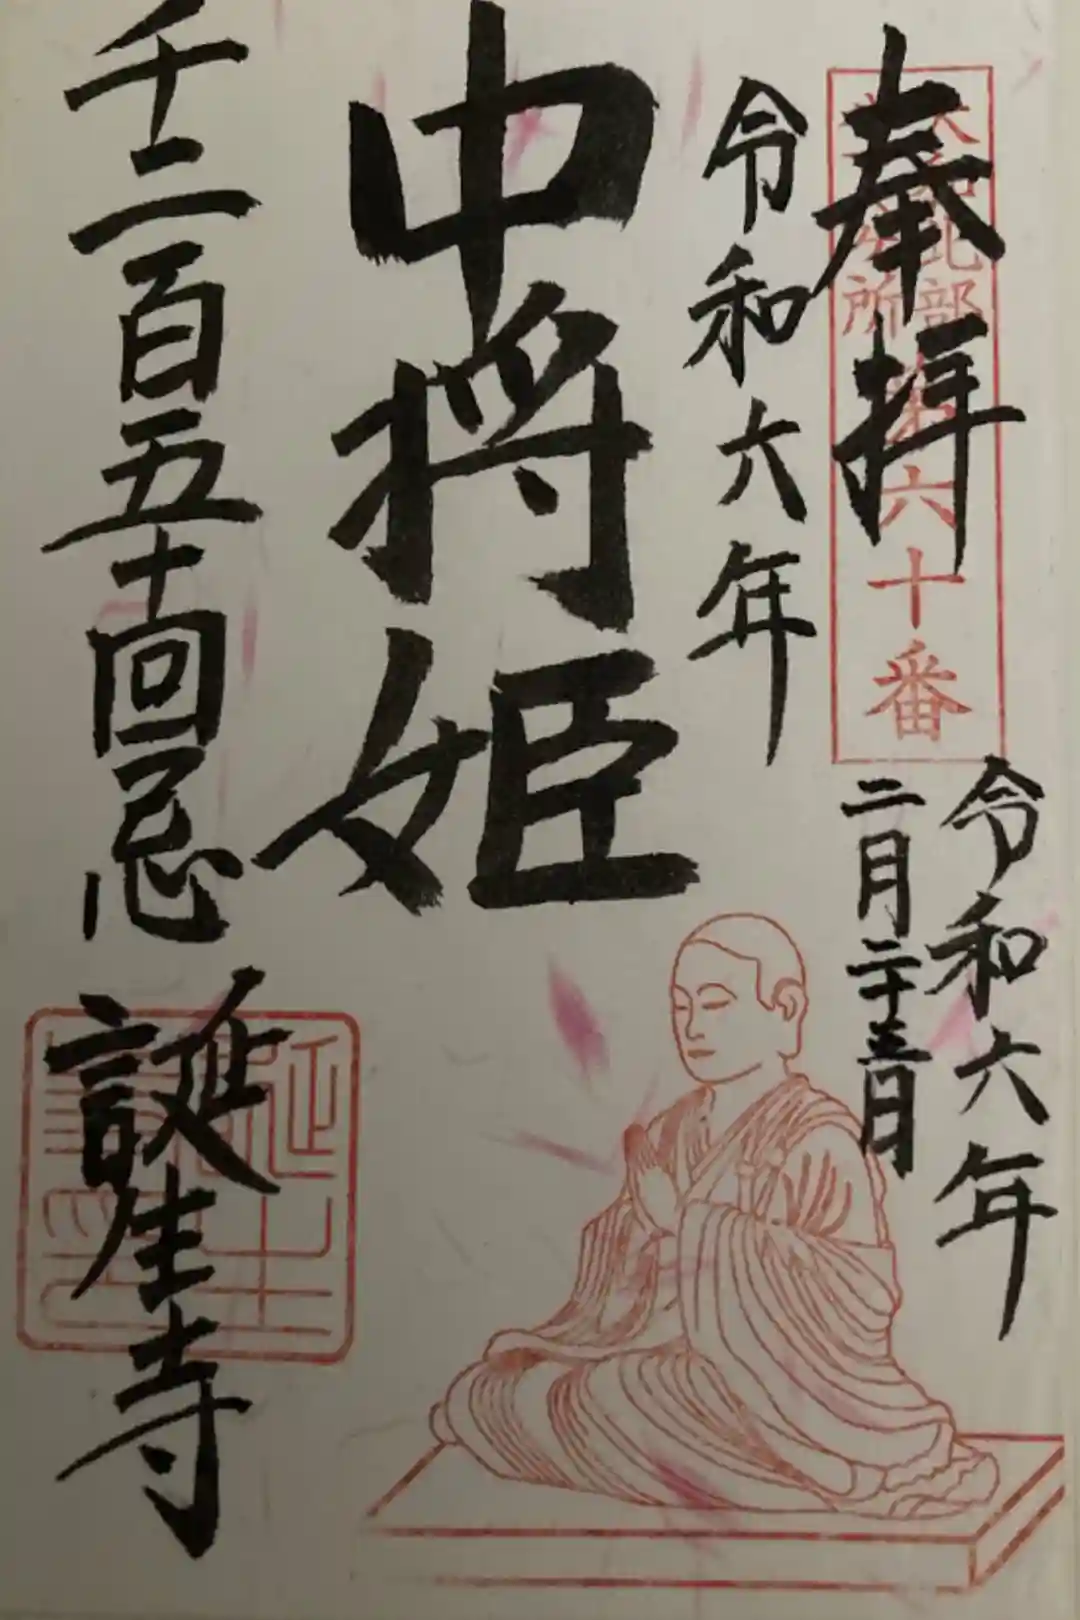 奉拝
大和北部
所第六十番
令和六年
二月二十五日
令和六年
中将姫
千二百五十回忌
誕生寺